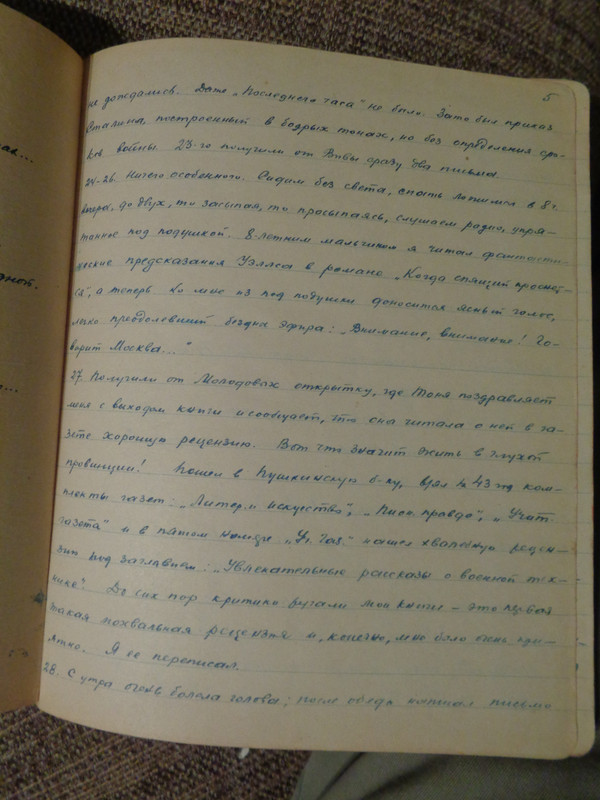 5
не дождались. Даже „Последнего часа" не было. Зато был приказ
Сталина, построенный в бодрых тонах, но без определения сро-
ков войны. 23-го получили от Вивы сразу два письма.
24-26. Ничего особенного. Сидим без света, спать ложимся в 8 ч.
вечера, до двух, то засыпая, то просыпаясь, слушаем радио, упря-
танное под подушкой. 8-летним мальчиком я читал фантасти-
ческие предсказания Уэллса в романе „Когда спящий проснет-
ся", а теперь ко мне из под подушки доносится ясный голос,
легко преодолевший бездны эфира: „Внимание, внимание! Го-
ворит Москва..."
27. Получили от Молодовых открытку, где Тоня поздравляет
меня с выходом книги и сообщает, что она читала о ней в га-
зете хорошую рецензию. Вот что значит жить в глухой
провинции! Пошел в Пушкинскую б-ку, взял за 43 год ком-
плекты газет: „Литер. и искусство", „Пион. правда", „Учит.
газета" и в пятом номере „Уч. Газ." нашел хвалебную рецен-
зию под заглавием: „Увлекательные рассказы о военной тех-
нике". До сих пор критики ругали мои книги – это первая
такая похвальная рецензия и, конечно, мне было очень при-
ятно. Я ее переписал.
28. С утра очень болела голова; после обеда написал письмо